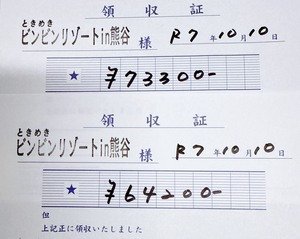 領収証
ときめき
ピンピンリゾートin熊谷 様 R7年10月10日
★ ¥773300-
領収証
ときめき
ピンピンリゾートin熊谷 様 R7年10月10日
★ ¥64200-
但
上記正に領収いたしました